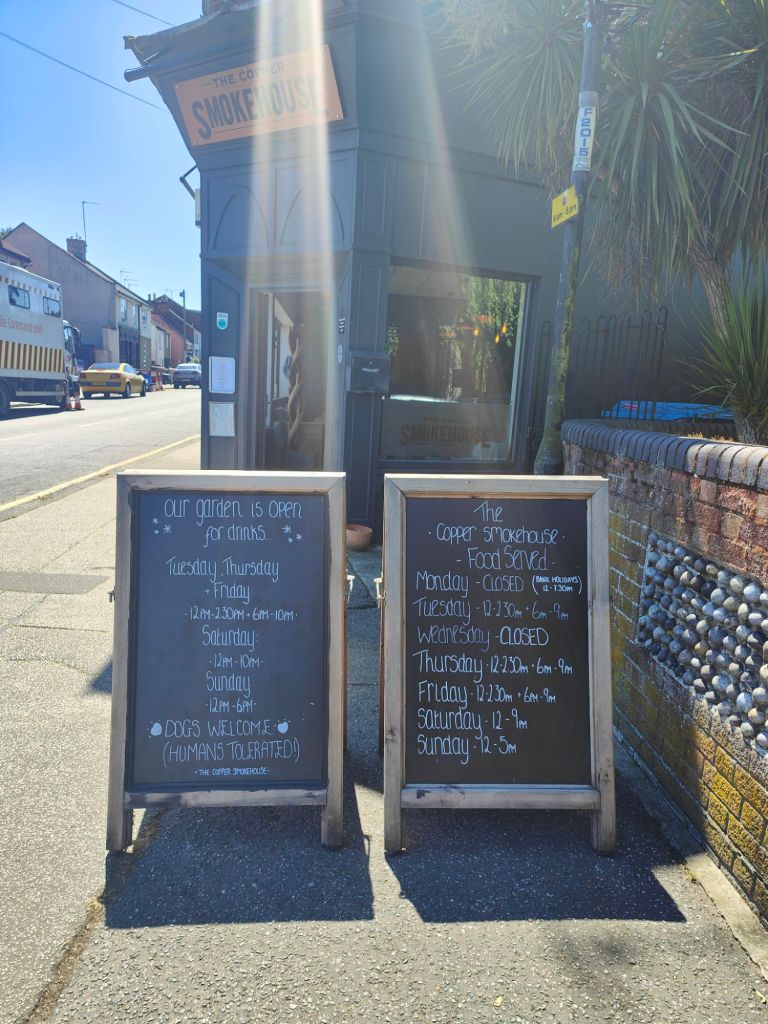 THE COPPER
SMOKEHOUSE
F2015
8am-6pm
Fire Command Unit
SMOKEHOUSE
our garden is open
for drinks...
Tuesday, Thursday
+ Friday
· 12PM-230PM + 6PM-10PM ·
Saturday:
· 12PM - 10PM ·
Sunday
· 12PM - 6PM ·
DOGS WELCOME
(HUMANS TOLERATED!)
· THE COPPER SMOKEHOUSE ·
The
· Copper Smokehouse ·
- Food Served -
Monday - CLOSED (BANK HOLIDAYS)
12 - 7.30PM
Tuesday - 12-230PM + 6PM-9PM
Wednesday - CLOSED
Thursday - 12-230PM + 6PM-9PM
Friday - 12-230PM + 6PM-9PM
Saturday - 12-9PM
Sunday - 12-5PM